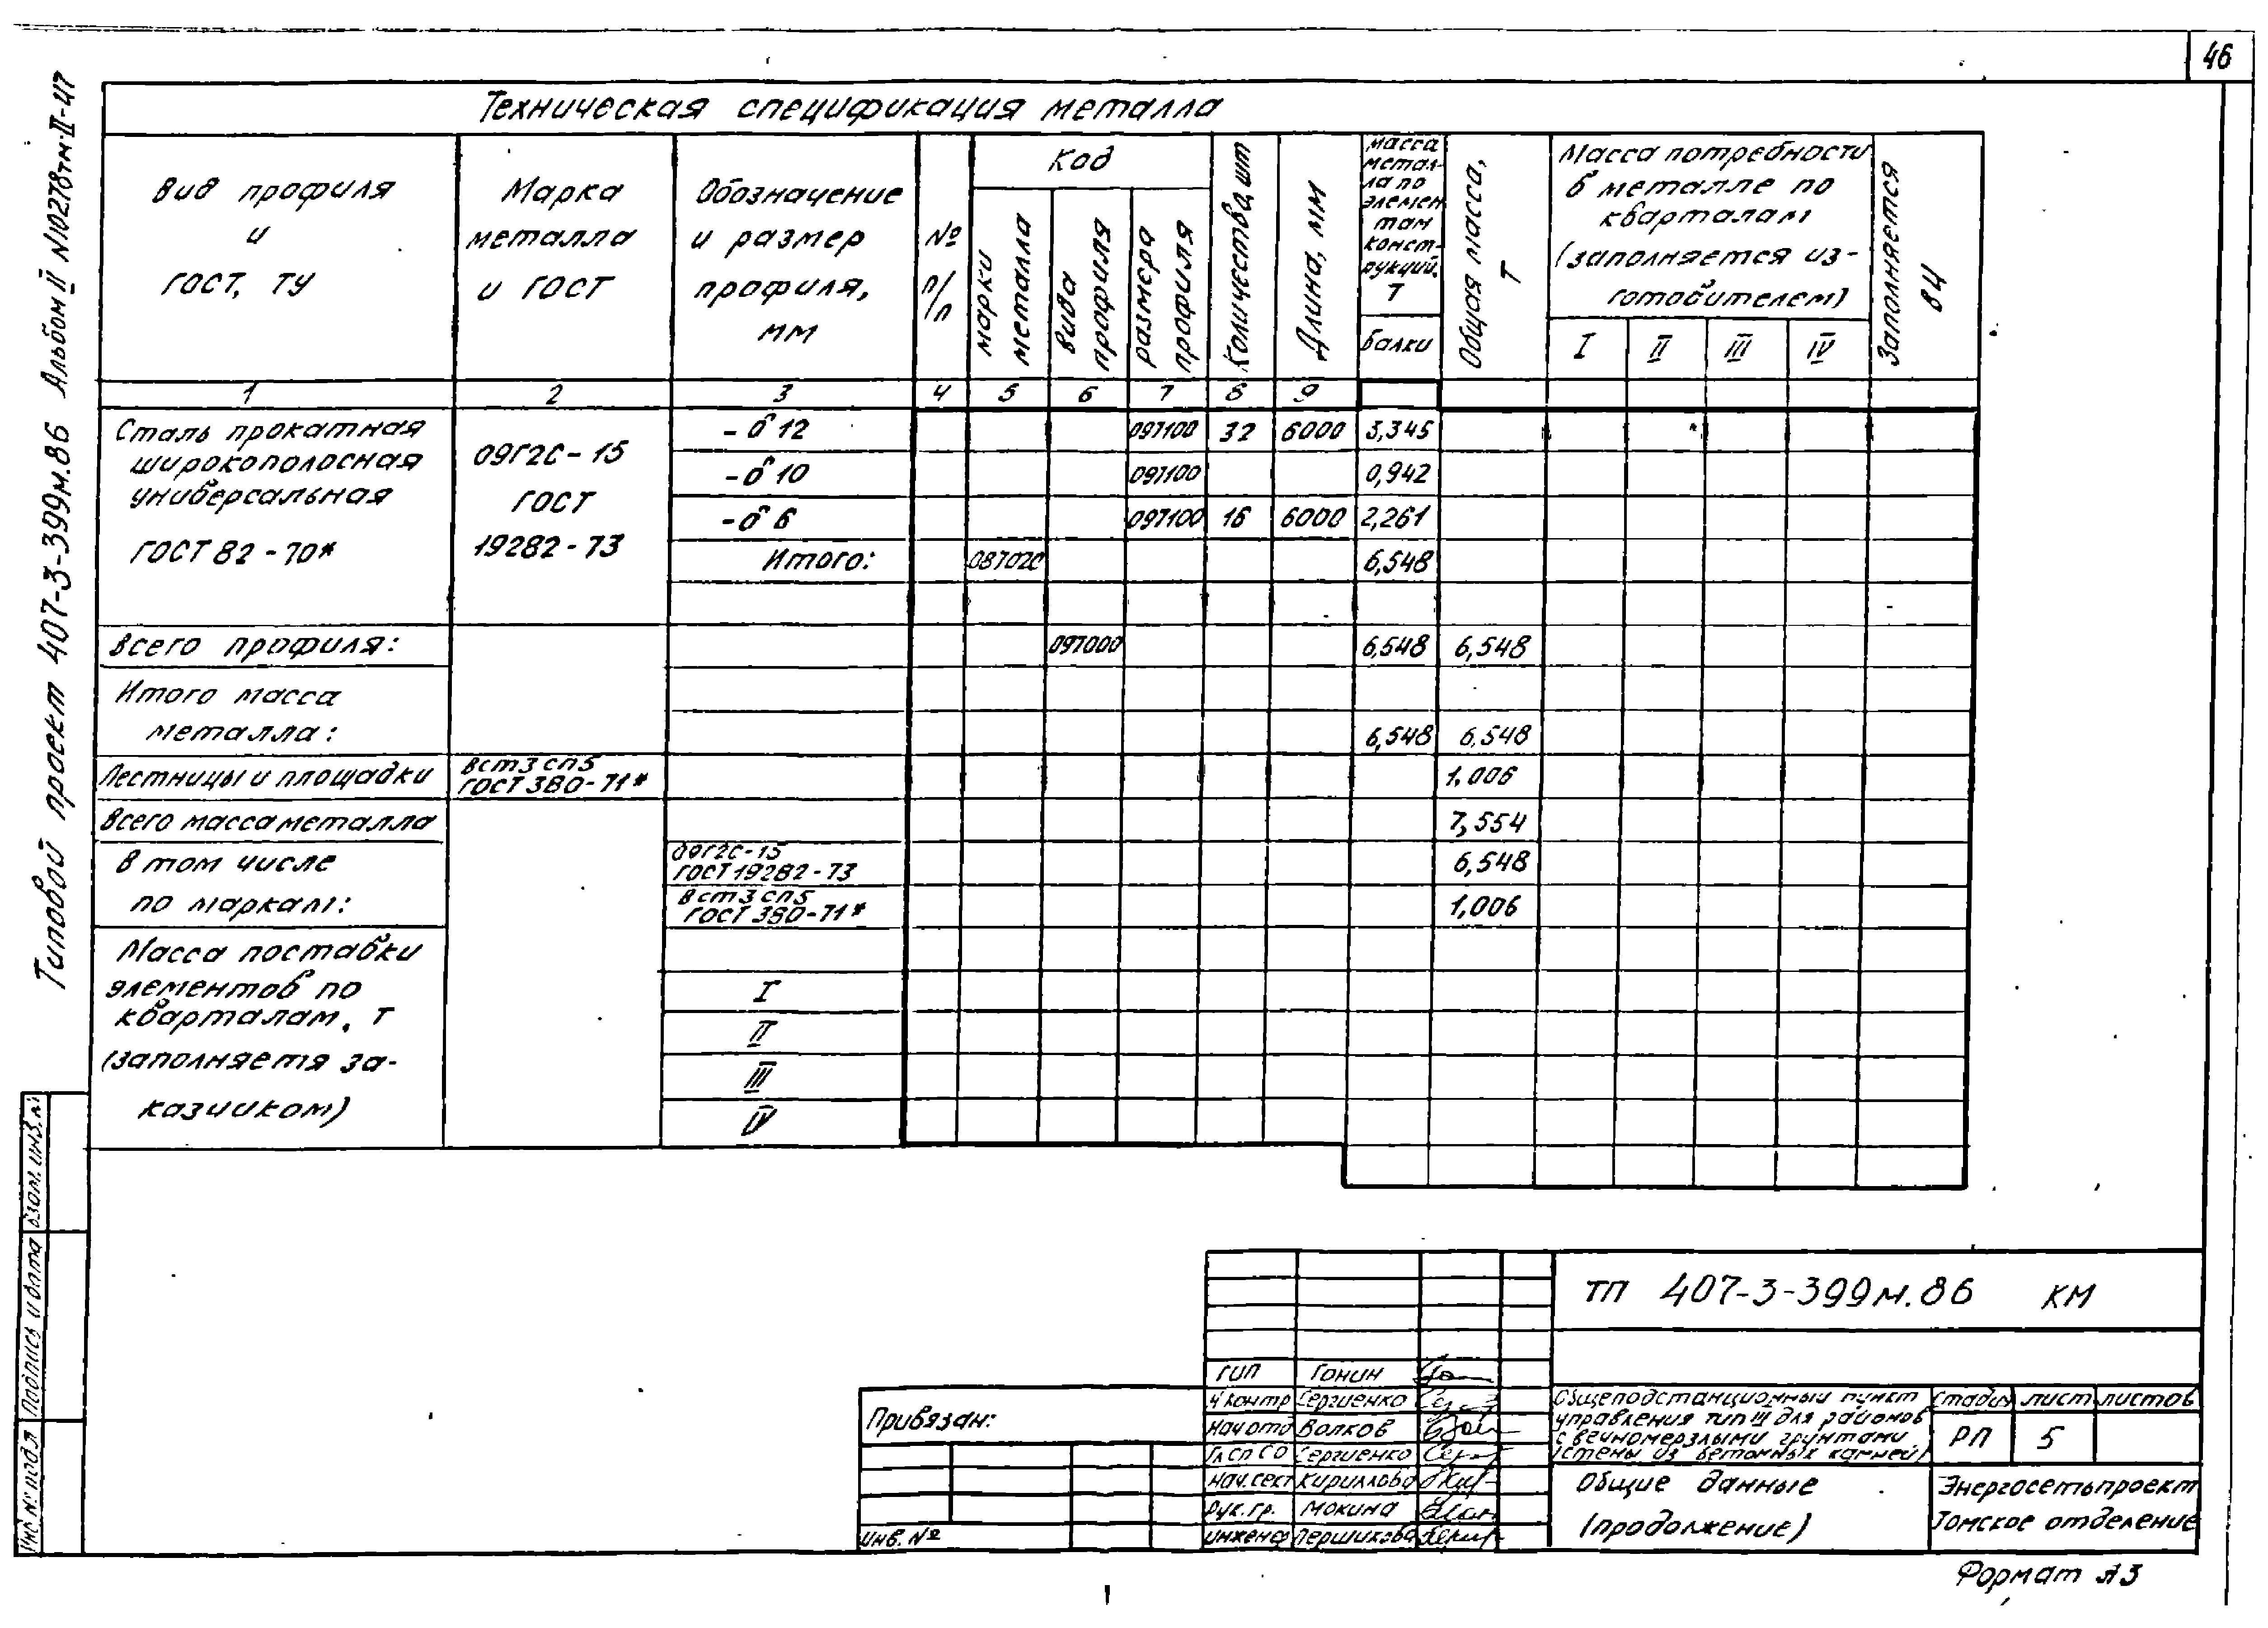 46
Типовой проект 407-3-399м.86 Альбом II №10278тм-II-47
Техническая спецификация металла
Вид профиля
и
ГОСТ, ТУ
Марка
металла
и ГОСТ
Обозначение
и размер
профиля,
мм
№
п/п
Код
марки
металла
вида
профиля
размера
профиля
Количество, шт
Длина, мм
Масса
метал-
ла по
элемен
там
конст-
рукций,
Т
балки
Общая масса,
Т
Масса потребности
в металле по
кварталам
(заполняется из-
готовителем)
I II III IV
Заполняется
ВЦ
1 2 3 4 5 6 7 8 9
Сталь прокатная
широкополосная
универсальная
ГОСТ 82-70*
09Г2С-15
ГОСТ
19282-73
-δ 12 097100 32 6000 3,345
-δ 10 097100 0,942
-δ 6 097100 16 6000 2,261
Итого: 087020 6,548
Всего профиля: 097000 6,548 6,548
Итого масса
металла: 6,548 6,548
Лестницы и площадки ВСт3сп5
ГОСТ 380-71* 1,006
Всего масса металла 7,554
В том числе
по маркам:
09Г2С-15
ГОСТ 19282-73 6,548
ВСт3сп5
ГОСТ 380-71* 1,006
Масса поставки
элементов по
кварталам, т
(заполняется за-
казчиком)
I
II
III
IV
Инв № подл Подпись и дата Взам. инв. №
Привязан:
Инв. №
ТП 407-3-399м.86 КМ
ГИП Гонин
Н контр Сергиенко
Нач отд Волков
Гл сп СО Сергиенко
Нач. сект Кириллова
Рук. гр. Мокина
Инженер Першикова
Общеподстанционный пункт
управления тип III для районов
с вечномерзлыми грунтами
(стены из бетонных камней)
Стадия лист листов
РП 5
Общие данные
(продолжение)
Энергосетьпроект
Томское отделение
Формат А3